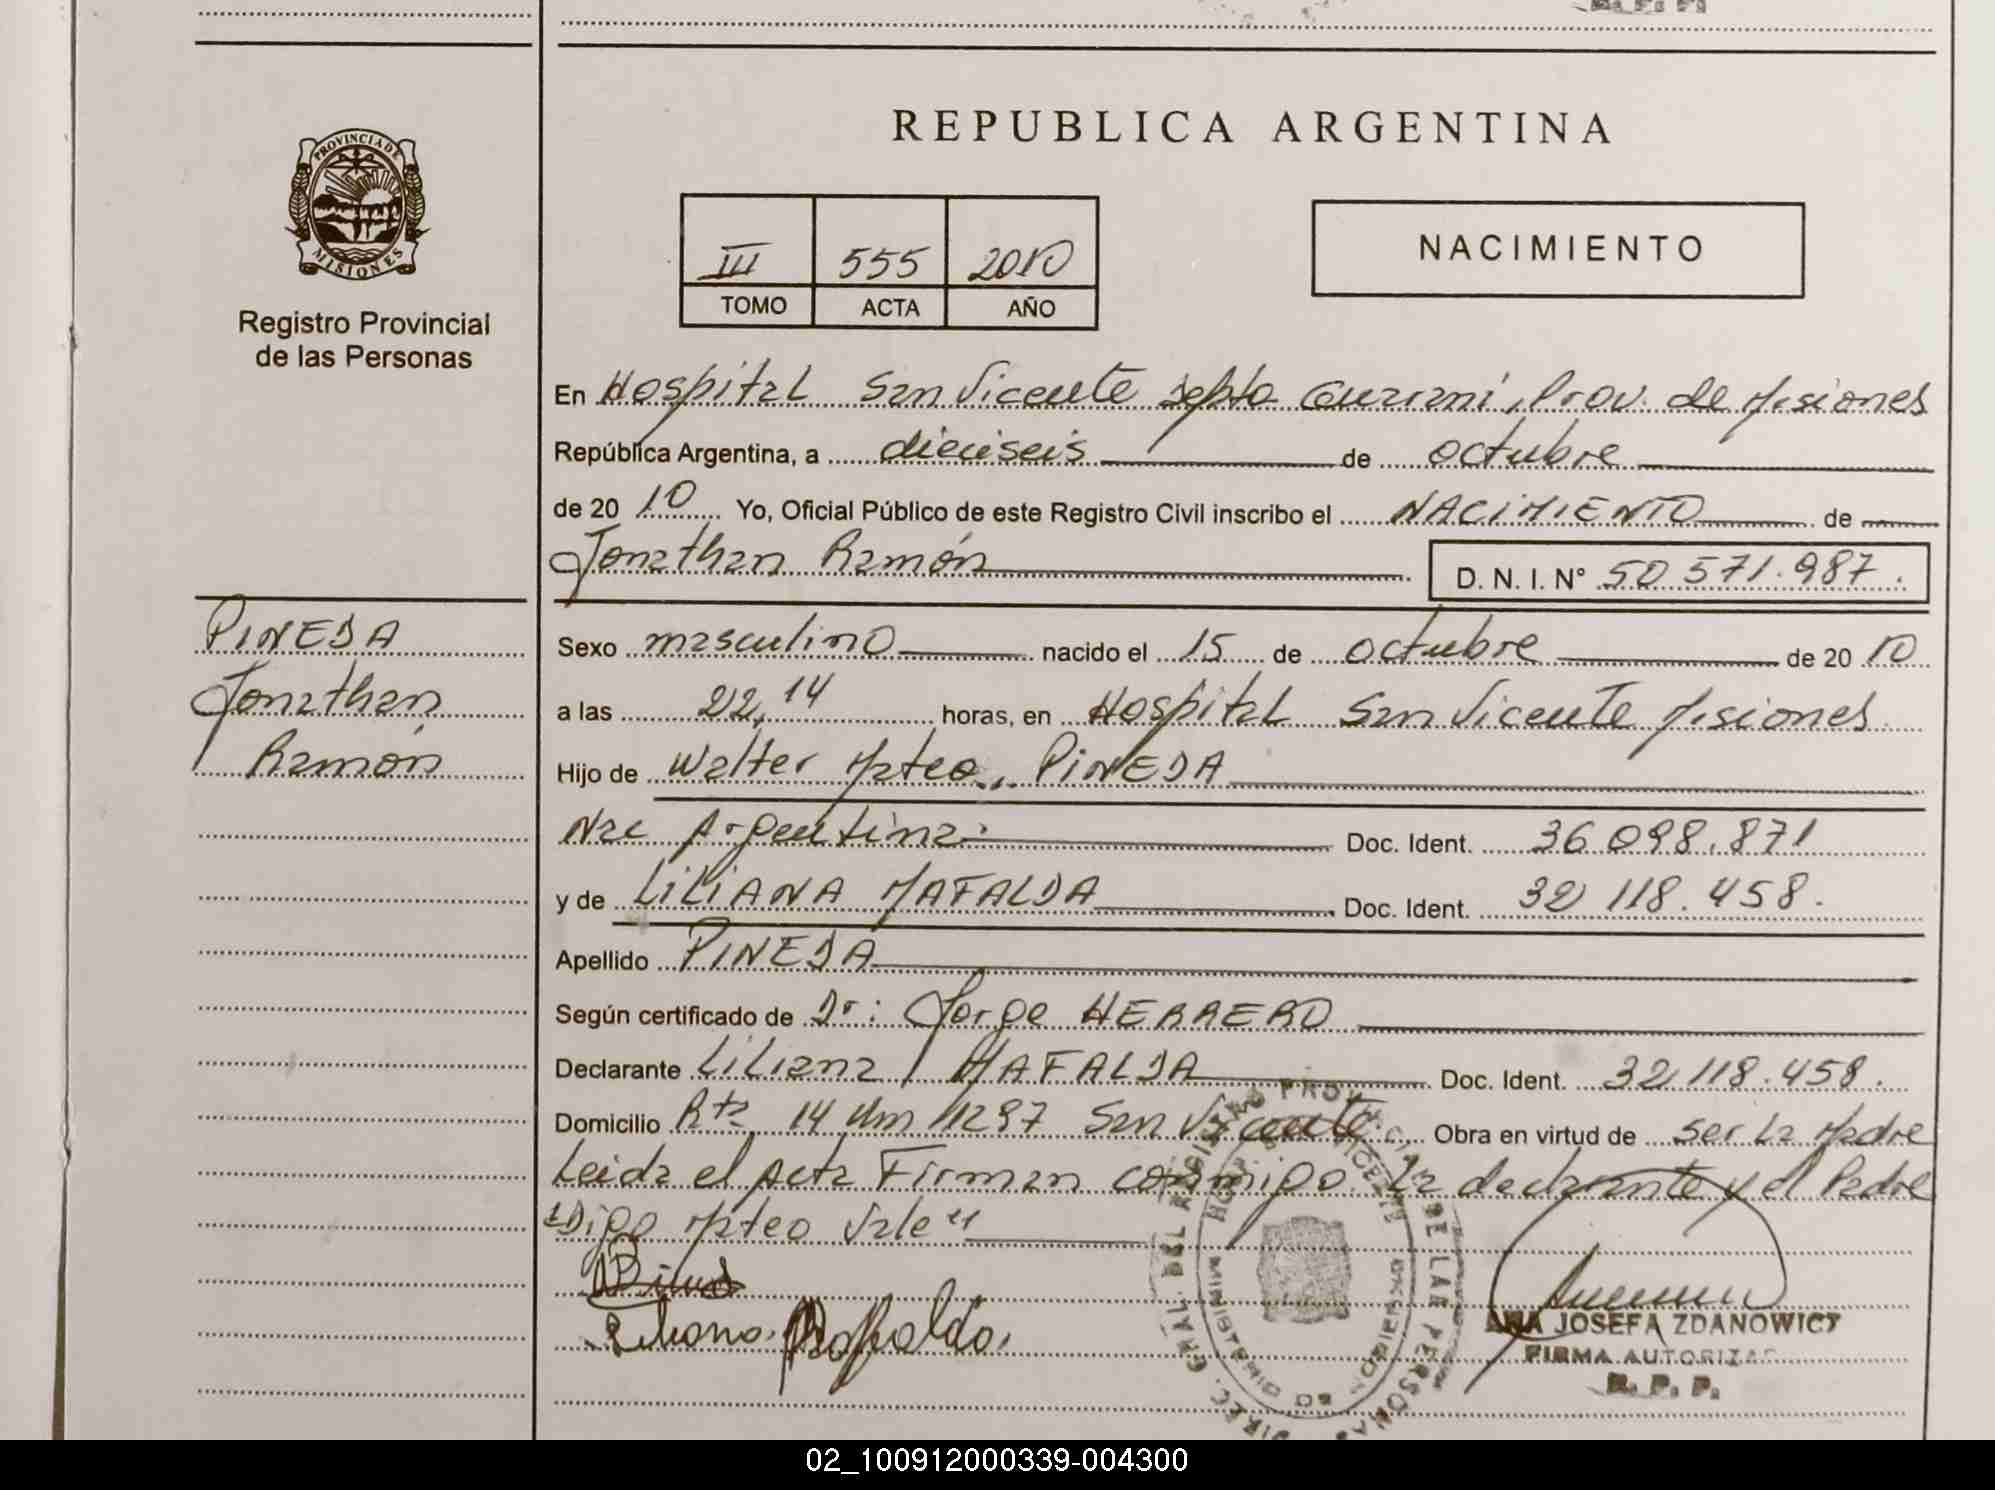 REPUBLICA ARGENTINA
PROVINCIA DE
MISIONES
Registro Provincial
de las Personas
III 555 2010
TOMO ACTA AÑO
NACIMIENTO
En Hospital San Vicente Depto Guarani, Prov. de Misiones
República Argentina, a dieciseis de octubre
de 20 10 Yo, Oficial Público de este Registro Civil inscribo el NACIMIENTO de
Jonathan Ramón D. N. I. N° 50 571.987.
PINEDA
Jonathan
Ramón
Sexo masculino nacido el 15 de octubre de 20 10
a las 22,14 horas, en Hospital San Vicente Misiones
Hijo de Walter Mateo, PINEDA
Nac Argentina. Doc. Ident. 36 098.871
y de LILIANA MAFALDA Doc. Ident. 32 118.458.
Apellido PINEDA
Según certificado de Dr: Jorge HERRERO
Declarante Liliana MAFALDA Doc. Ident. 32 118.458.
Domicilio Rta 14 Km 1297 San Vicente Obra en virtud de ser la Madre
Leida el Acta Firman conmigo la declarante y el Padre
"Digo Mateo Vale"
ANA JOSEFA ZDANOWICZ
FIRMA AUTORIZAD
R. P. P.
02_100912000339-004300